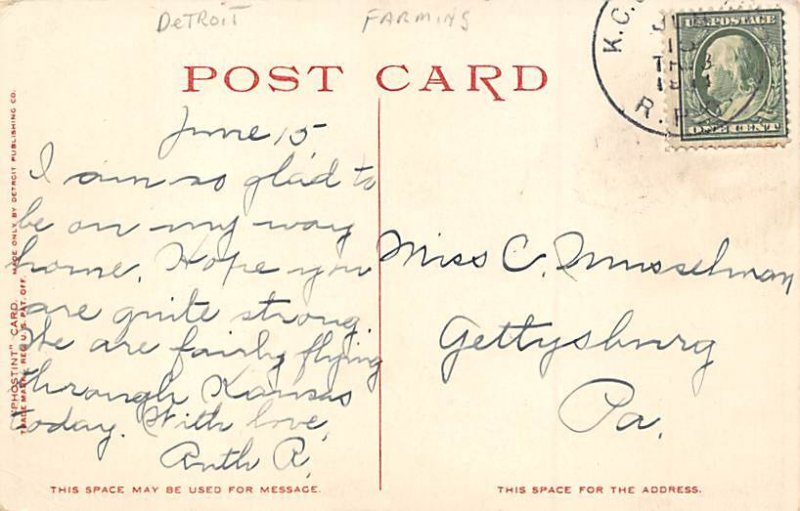 DeTROIT FARMING
POST CARD
K.C.
JU
15
TR 3
R.P.
U.S. POSTAGE
ONE CENT
June 15
I am so glad to
be on my way
home. Hope you
are quite strong.
We are fairly flying
through Kansas
today. With love,
Ruth R.
Miss C. Musselman
Gettysburg
Pa.
"PHOSTINT" CARD. MADE ONLY BY DETROIT PUBLISHING CO.
TRADE MARK REG. U.S. PAT. OFF.
THIS SPACE MAY BE USED FOR MESSAGE.
THIS SPACE FOR THE ADDRESS.